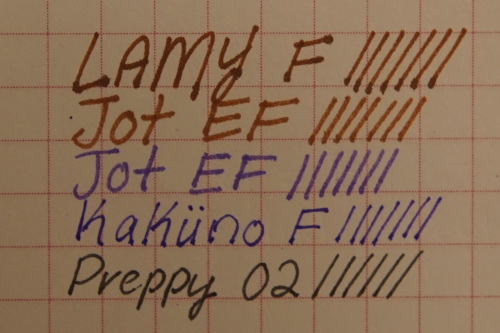 LAMY F ///////
Jot EF ///////
Jot EF ///////
Kaküno F ///////
Preppy 02 ///////